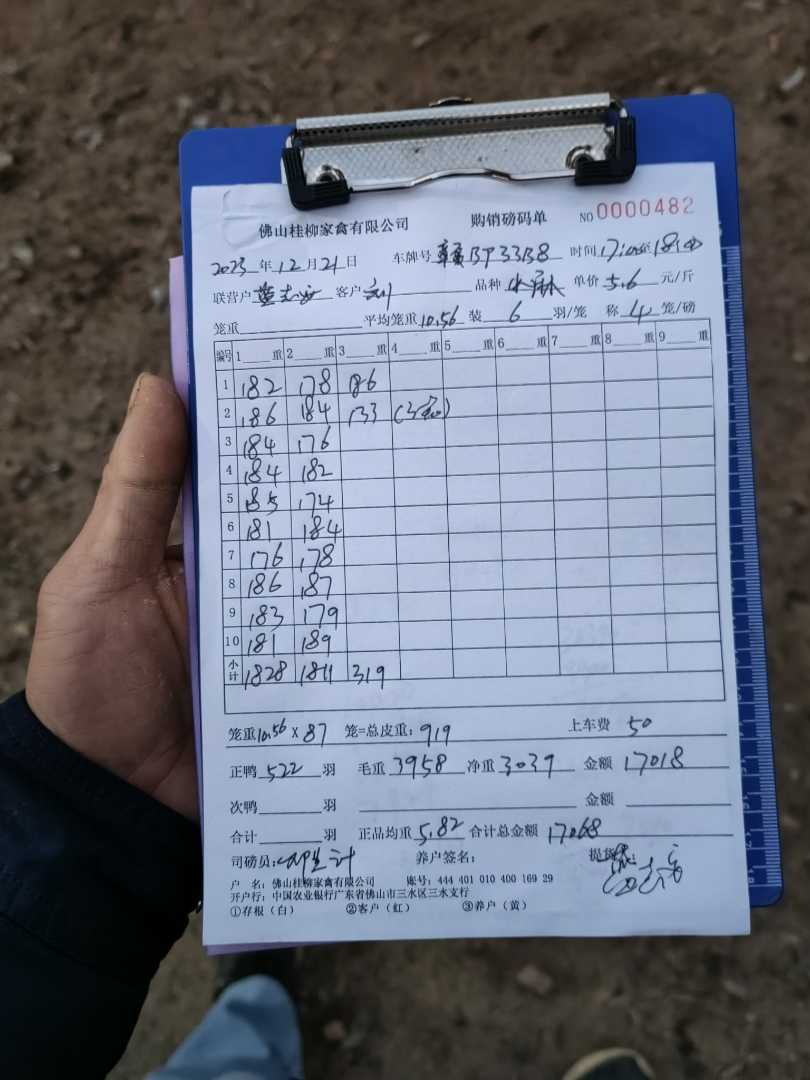 佛山桂柳家禽有限公司 购销磅码单 NO 0000482
2023年12月21日 车牌号 赣BP33B8 时间 17:00至18:00
联营户 客户 刘 品种 单价 5.6 元/斤
笼重 平均笼重 10.56 装 6 羽/笼 称 4 笼/磅
编号 1 重 2 重 3 重 4 重 5 重 6 重 7 重 8 重 9 重
1 182 178 186
2 186 184 133 (3笼)
3 184 176
4 184 182
5 185 174
6 181 184
7 176 178
8 186 187
9 183 179
10 181 189
小计 1828 1811 319
笼重 10.56 × 87 笼=总皮重: 919 上车费 50
正鸭 522 羽 毛重 3958 净重 3039 金额 17018
次鸭 羽 金额
合计 羽 正品均重 5.82 合计总金额 17068
司磅员: 养户签名: 提货
户 名: 佛山桂柳家禽有限公司 账号: 444 401 010 400 169 29
开户行: 中国农业银行广东省佛山市三水区三水支行
①存根(白) ②客户(红) ③养户(黄)